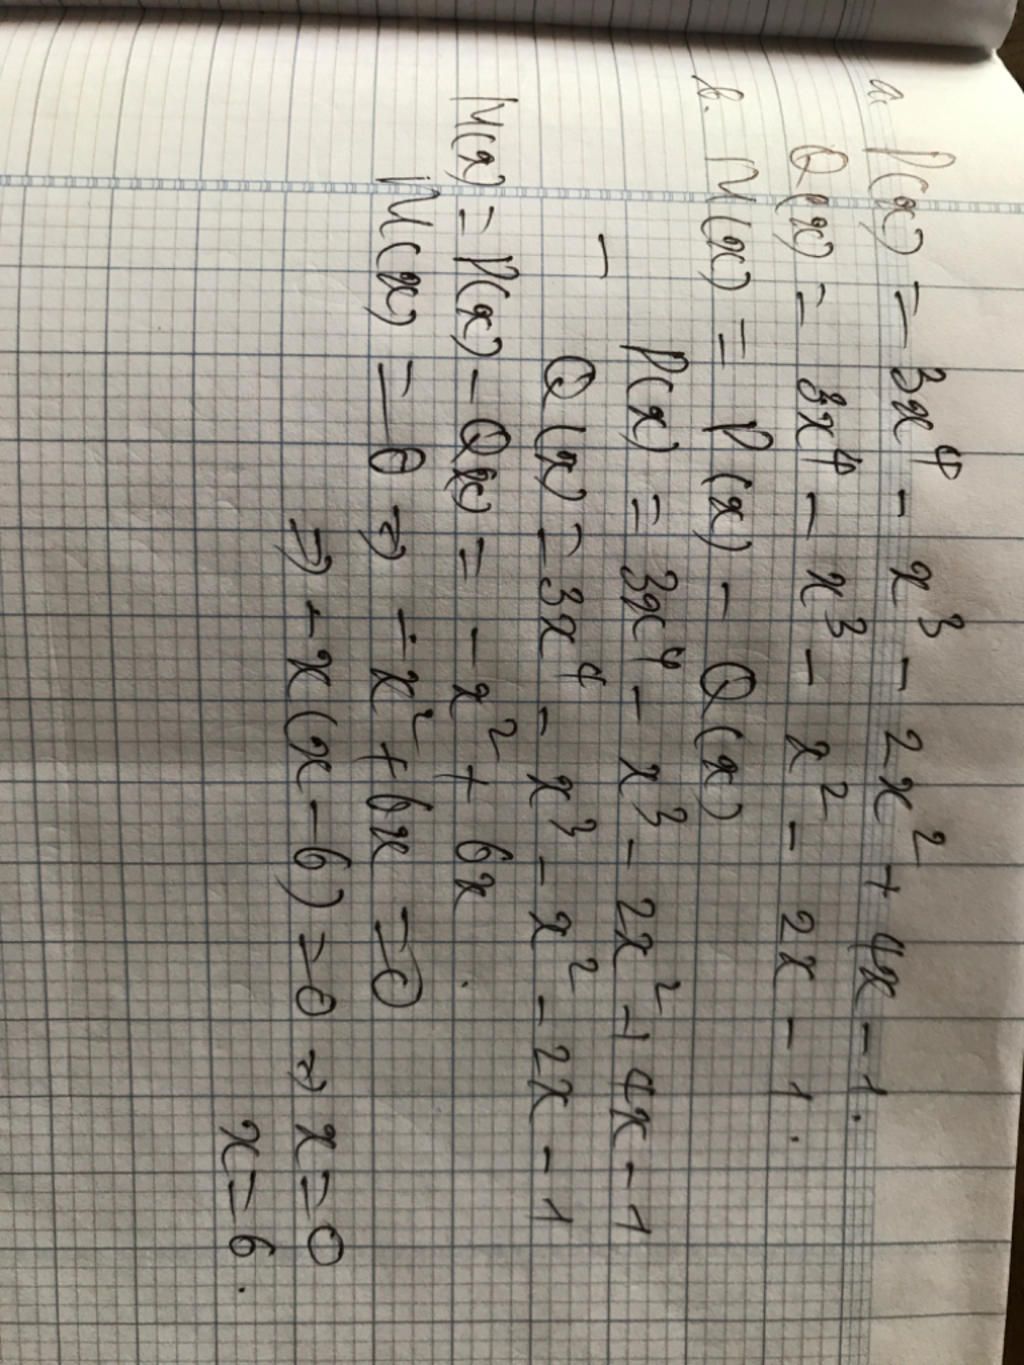 a. P(x) = 3x⁴ - x³ - 2x² + 4x - 1.
Q(x) = 3x⁴ - x³ - x² - 2x - 1.
b. M(x) = P(x) - Q(x)
P(x) = 3x⁴ - x³ - 2x² + 4x - 1
-
Q(x) = 3x⁴ - x³ - x² - 2x - 1
M(x) = P(x) - Q(x) = - x² + 6x.
M(x) = 0 => - x² + 6x = 0
=> - x(x - 6) = 0 => x = 0
x = 6.